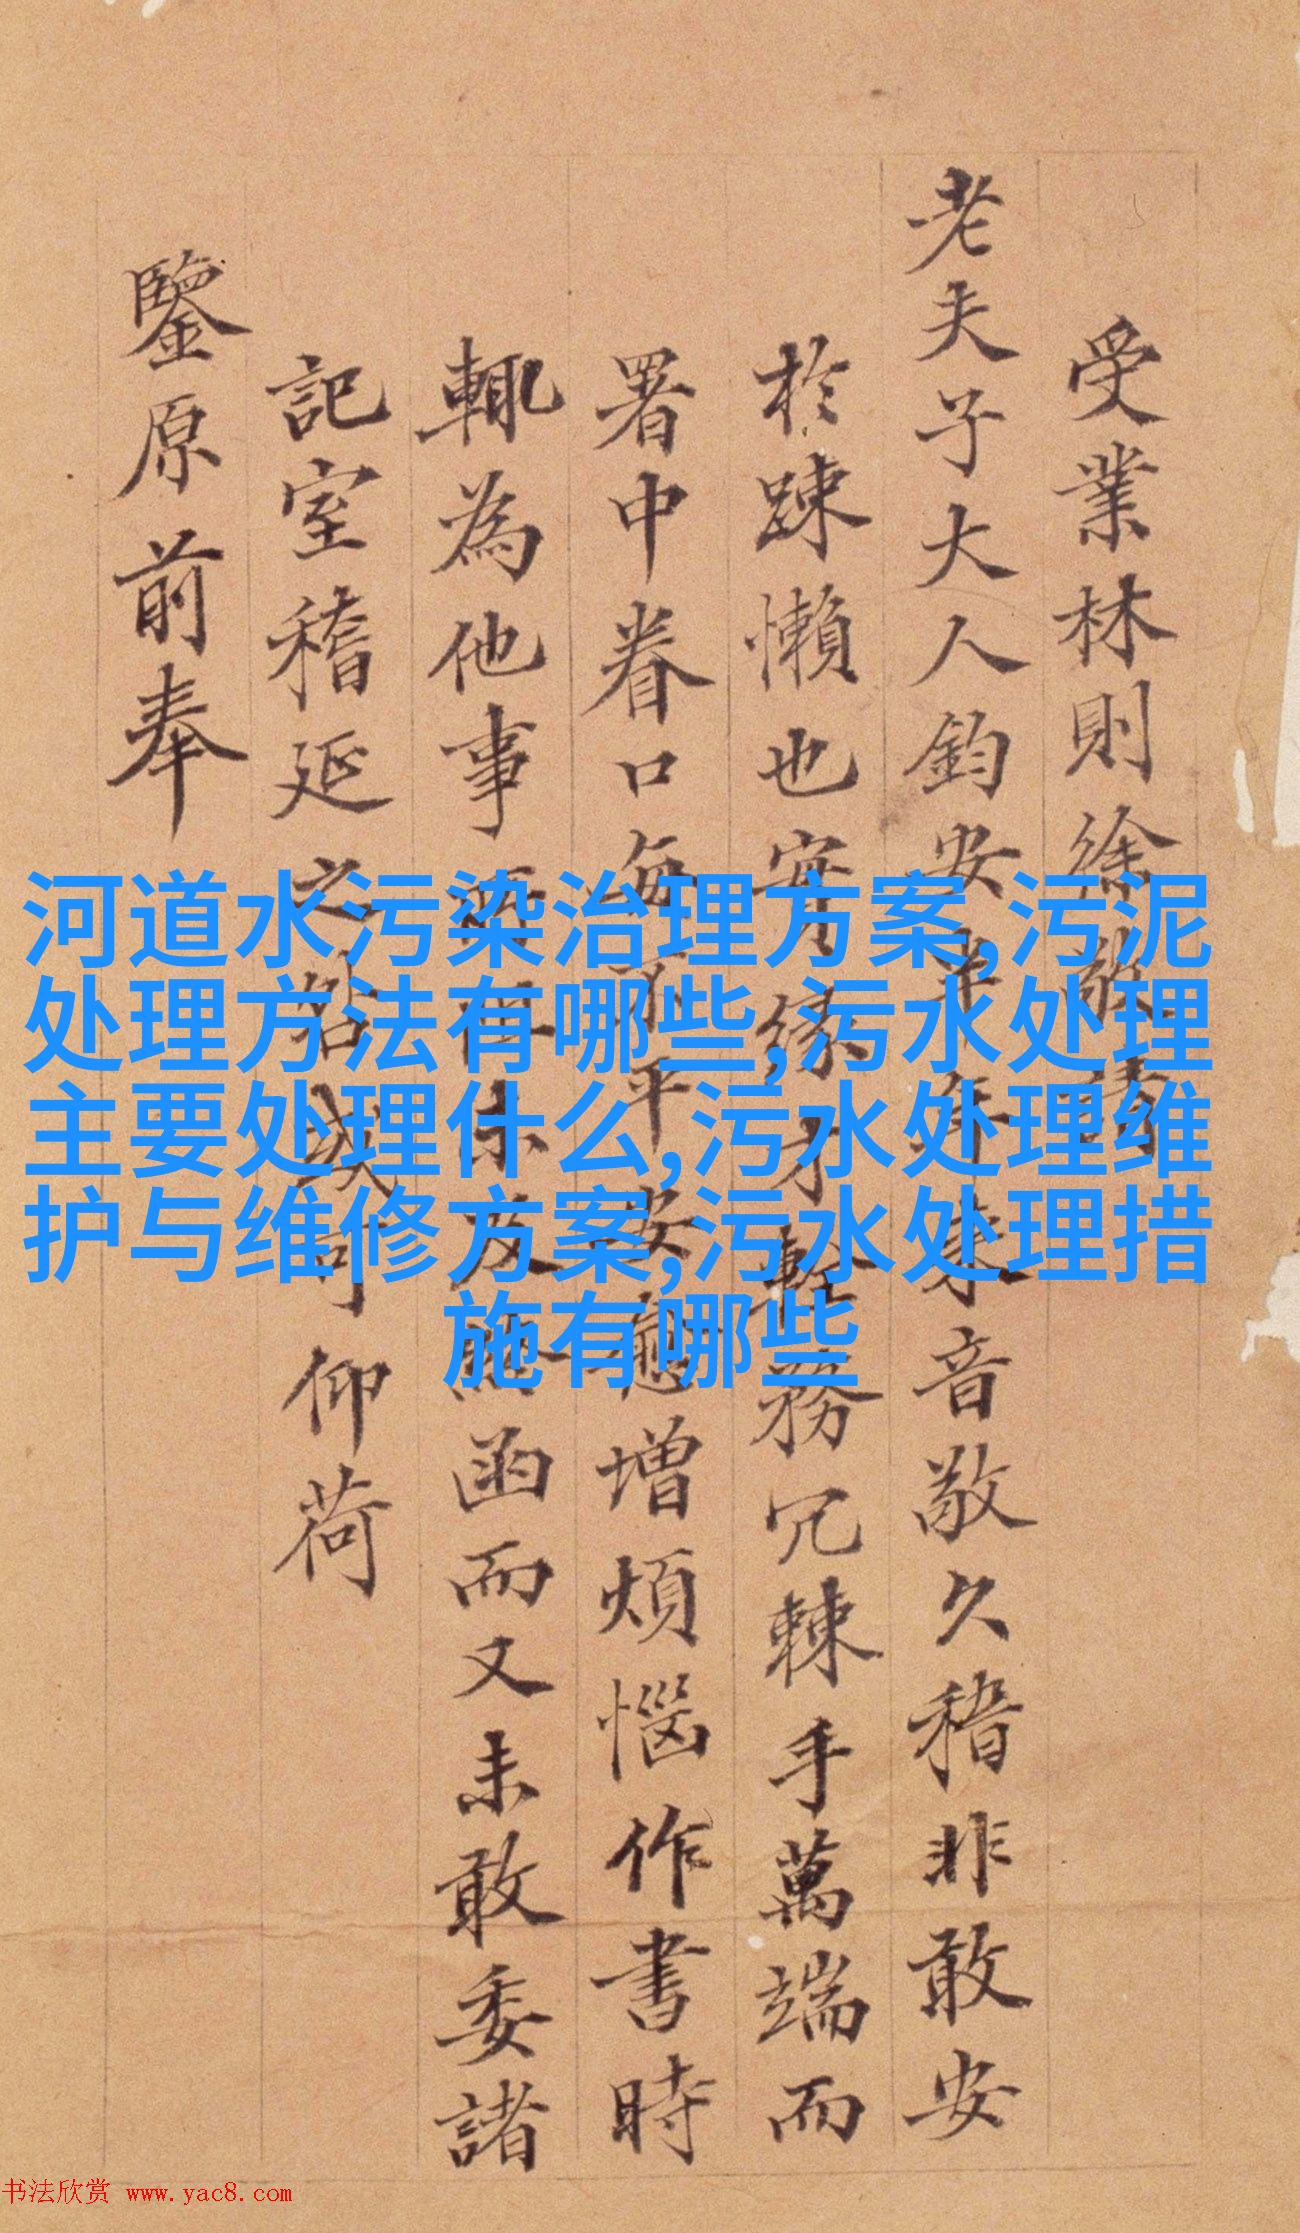 受業林則徐敬請
老夫子大人鈞安半年来音敬久稽非敢安
於踈懶也實緣才軽務冗棘手萬端而
署中眷口每不平安愈增煩惱作書時
輒為他事而未及函而又未敢委諸
記室稽延之咎或可仰荷
鑒原前奉
河道水污染治理方案,污泥
处理方法有哪些,污水处理
主要处理什么,污水处理维
护与维修方案,污水处理措
施有哪些
书法欣赏 www.yac8.com